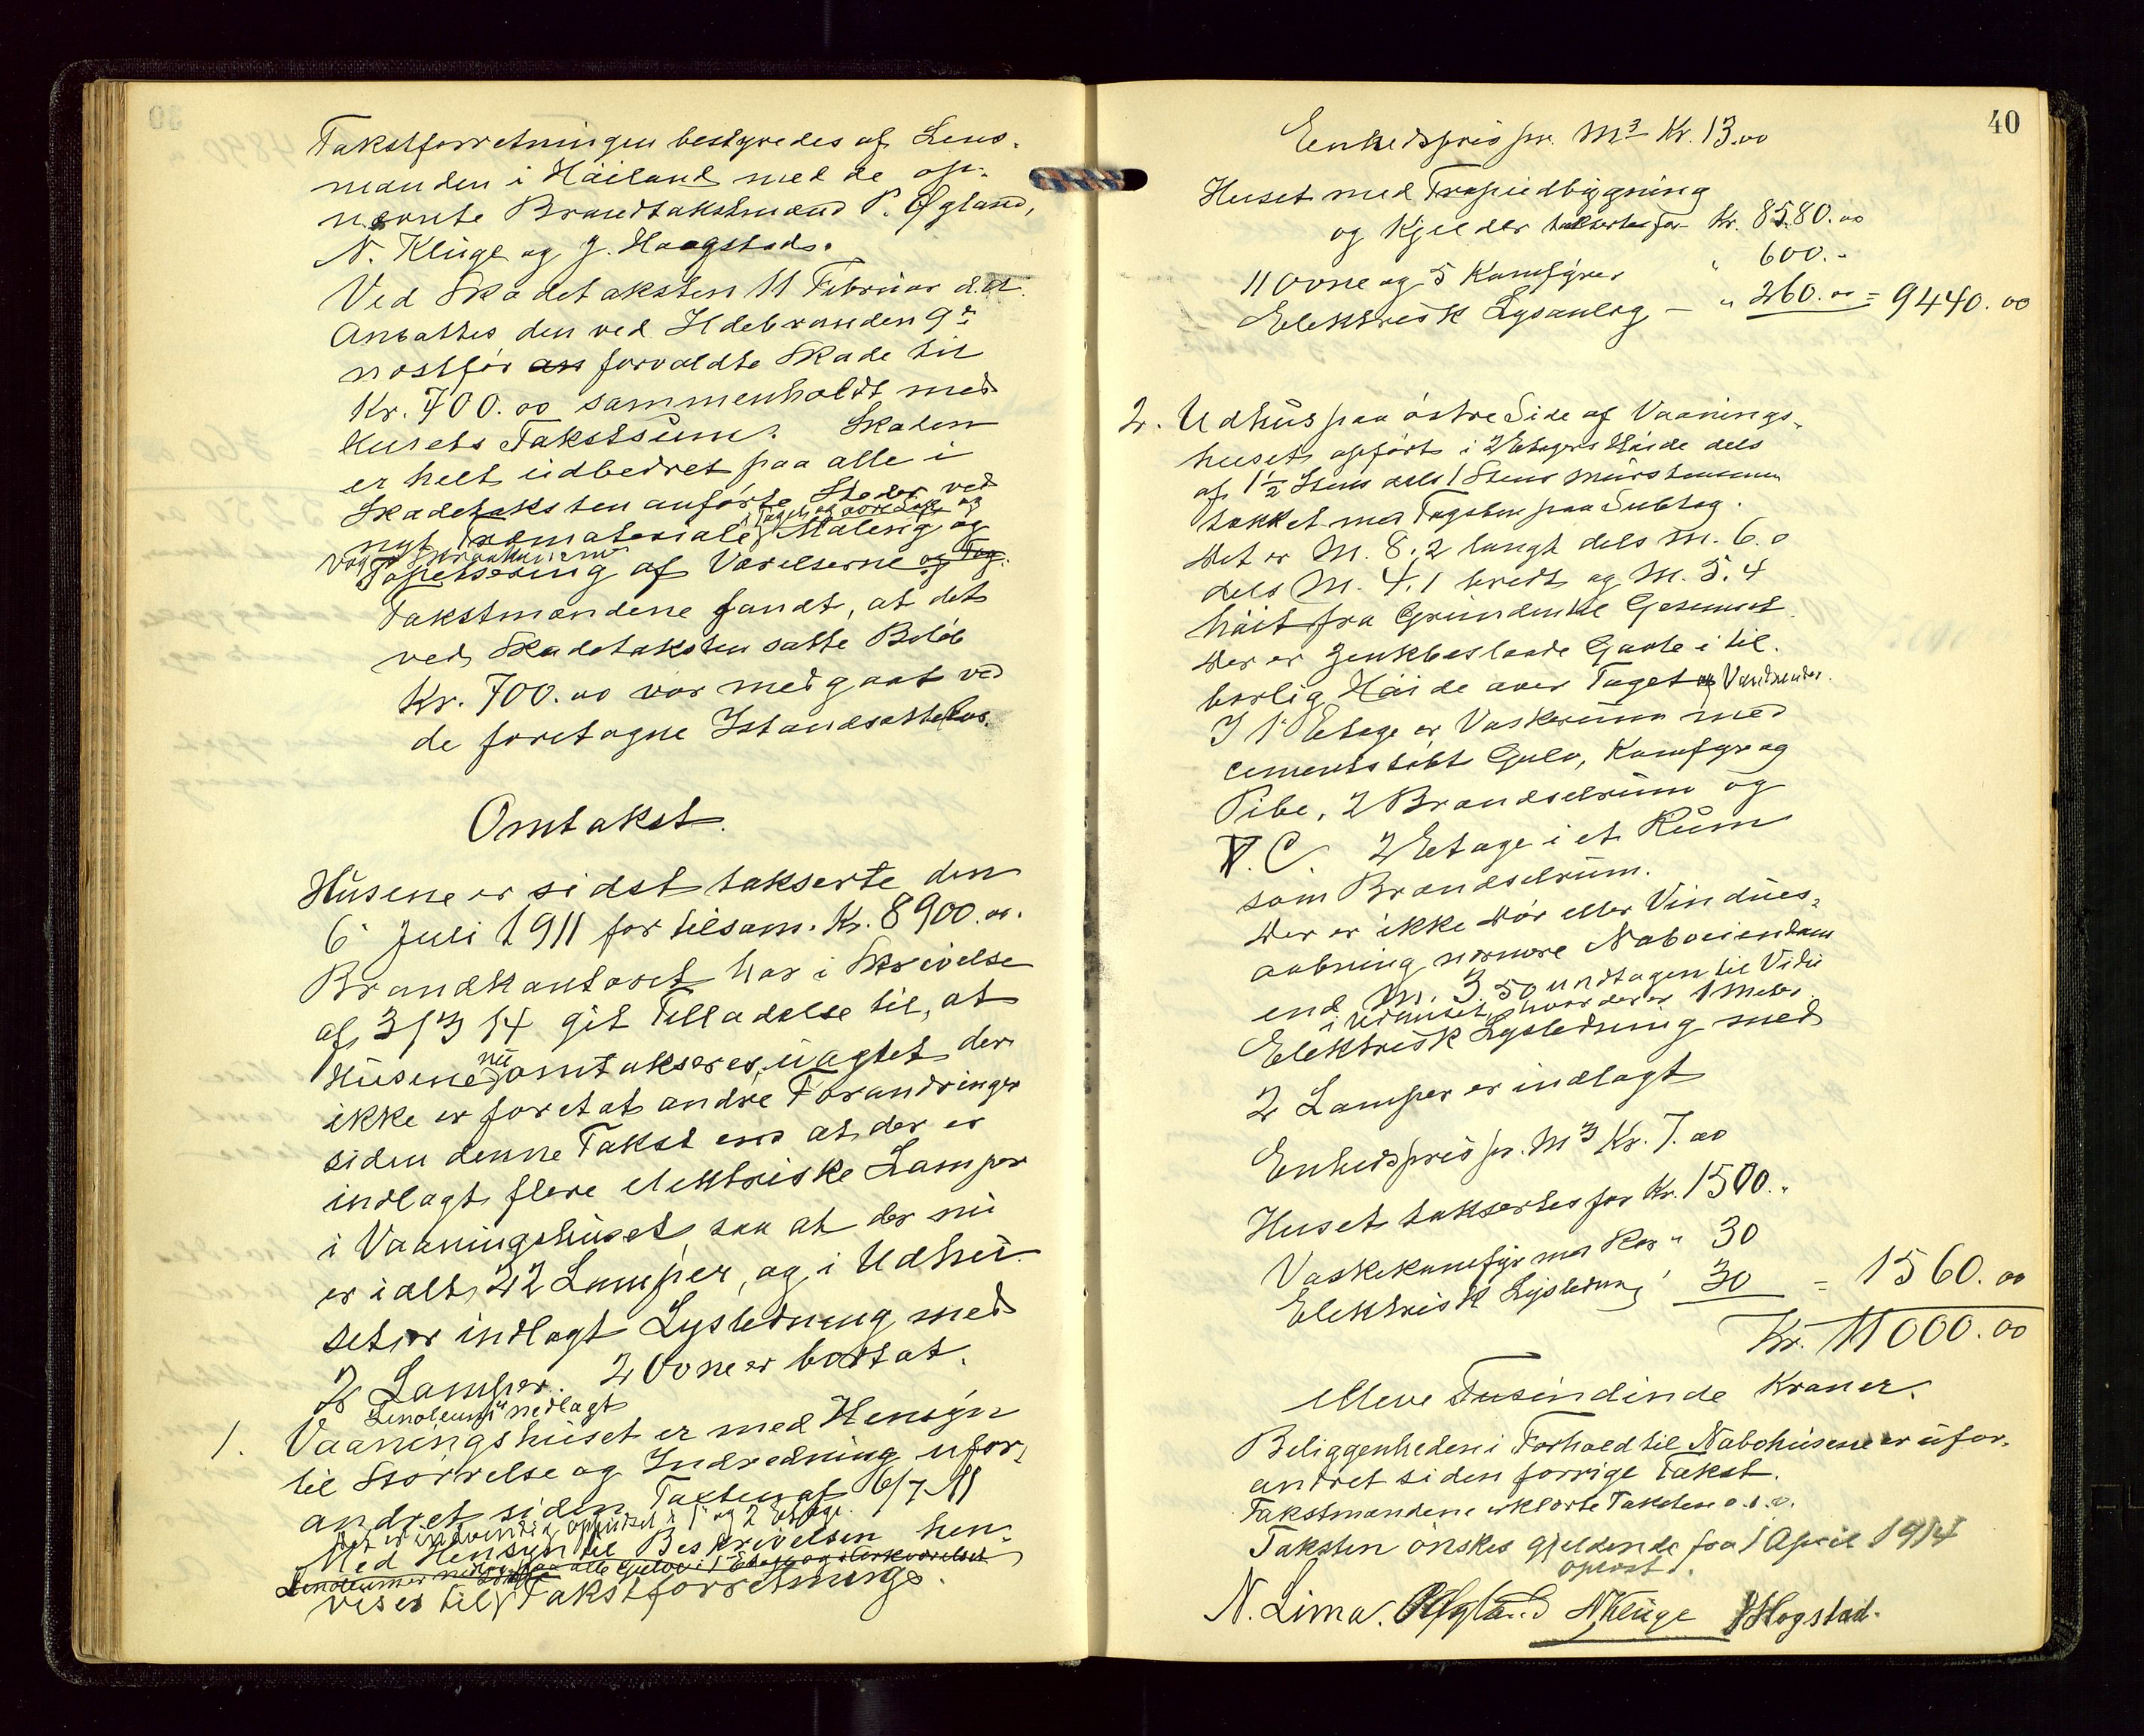 Takstforretningen bestyredes af Lens-
manden i Håiland med de op-
nævnte Brandtakstmænd P. Øgland,
N. Kluge og J. Haagstad.
Ved Skadetaksten 11 Februar d.a.
Ansattes den ved Ildebranden 9de
nostfør an forvoldte Skade til
Kr. 700.00 sammenholdt med
Husets Takstsum. Skaden
er helt udbedret paa alle i
Skadetaksten anførte Steder ved
nyt Træmateriale, Maling og
Tapetsering af Værelserne og Tag.
Takstmændene fandt, at det
ved Skadetaksten satte Beløb
Kr. 700.00 var medgaaet ved
de foretagne Istandsættelser.
Omtakst.
Husene er sidst takserte den
6 Juli 1911 for tilsam. Kr. 8900.00.
Brandkontoret har i Skrivelse
af 3/3 14 git Tilladelse til, at
Husene nu omtakseres, uagtet der
ikke er foretat andre Forandringer
siden denne Takst end at der er
indlagt flere elektriske Lamper
i Vaaningshuset saa at der nu
er ialt 22 Lamper, og i Udhu-
set er indlagt Lysledning med
2 Lamper. 2 Ovne er borttat.
Linoleum nedlagt
1. Vaaningshuset er med Hensyn
til Størrelse og Indredning ufor-
andret siden Taksten af 6/7 11
Det er indvendig oppudset i 1ste og 2 Etage.
Med Hensyn til Beskrivelsen hen-
vises til Takstforretninge.
40
Eenhedspris pr. M3 Kr. 13.00
Huset med Trapiedbygning
og Kjelder taksertes for Kr. 8580.00
11 Ovne og 5 Komfyrer " 600.-
Elektrisk Lysanlæg - " 260.00 = 9440.00
2. Udhus paa østre Side af Vaanings-
huset, opført i 2 Etagers Høide dels
af 1½ Stens dels 1 Stens Mur
takket med Tagsten paa Sutag.
Det er M. 8.2 langt dels M. 6.0
dels M. 4.1 bredt og M. 5.4
høit fra Grunden til Gesimset
Der er zenkbeslaade Gavle i til-
børlig Høide over Taget og Vandrender.
I 1 Etage er Vaskerum med
cementstøbt Gulv, Komfyr og
Pibe, 2 Brandselrum og
V.C. 2 Etage i et Rum
som Brandselrum.
Der er ikke Dør eller Vindues-
aabning nærmere Naboeiendom
end M. 3.50 undtagen til Vidie
i Udhuset, hvor der er 1 Meter
Elektrisk Lysledning med
2 Lamper er indlagt
Enhedspris pr. M3 Kr. 7.00
Huset takseres for Kr. 1500.-
Vaskekomfyr med Kar " 30
Elektrisk Lysledning " 30 = 1560.00
Kr. 11000.00
elleve Tusindinde Kroner.
Beliggenheden i Forhold til Nabohusene er ufor-
andret siden forrige Takst.
Takstmændene erklærte Taksten o.s.v.
Taksten ønskes gjeldende fra 1 April 1914
oplæst.
N. Lima. P Øgland N Kluge J Hogstad.